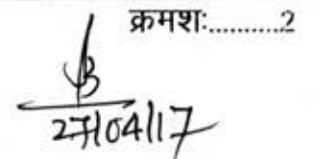 क्रमशः..........2
27/04/17